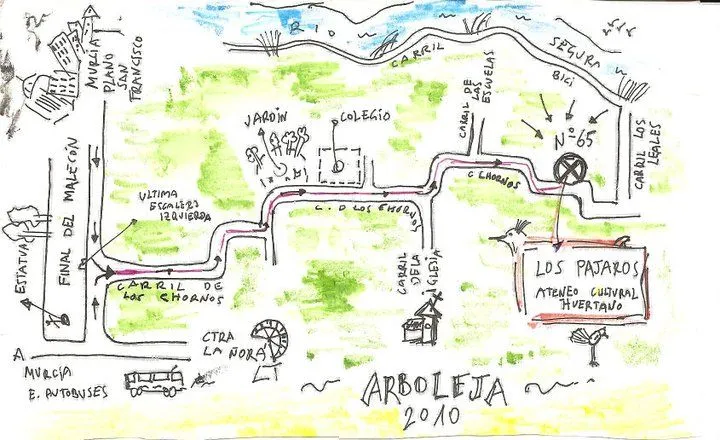 RIO
SEGURA
CARRIL
BICI
MURCIA
PLANO
SAN
FRANCISCO
JARDIN
COLEGIO
CARRIL DE
LAS
ESCUELAS
Nº 65
CARRIL LOS
LEALES
FINAL DEL MALECÓN
ULTIMA
ESCALERA
IZQUIERDA
ESTATUA
C. D LOS CHORNOS
C CHORNOS
CARRIL DE
LOS CHORNOS
CARRIL
DE LA
IGLESIA
LOS PAJAROS
ATENEO CULTURAL
HUERTANO
CTRA
LA ÑORA
A
MURCIA
E. AUTOBUSES
ARBOLEJA
2010